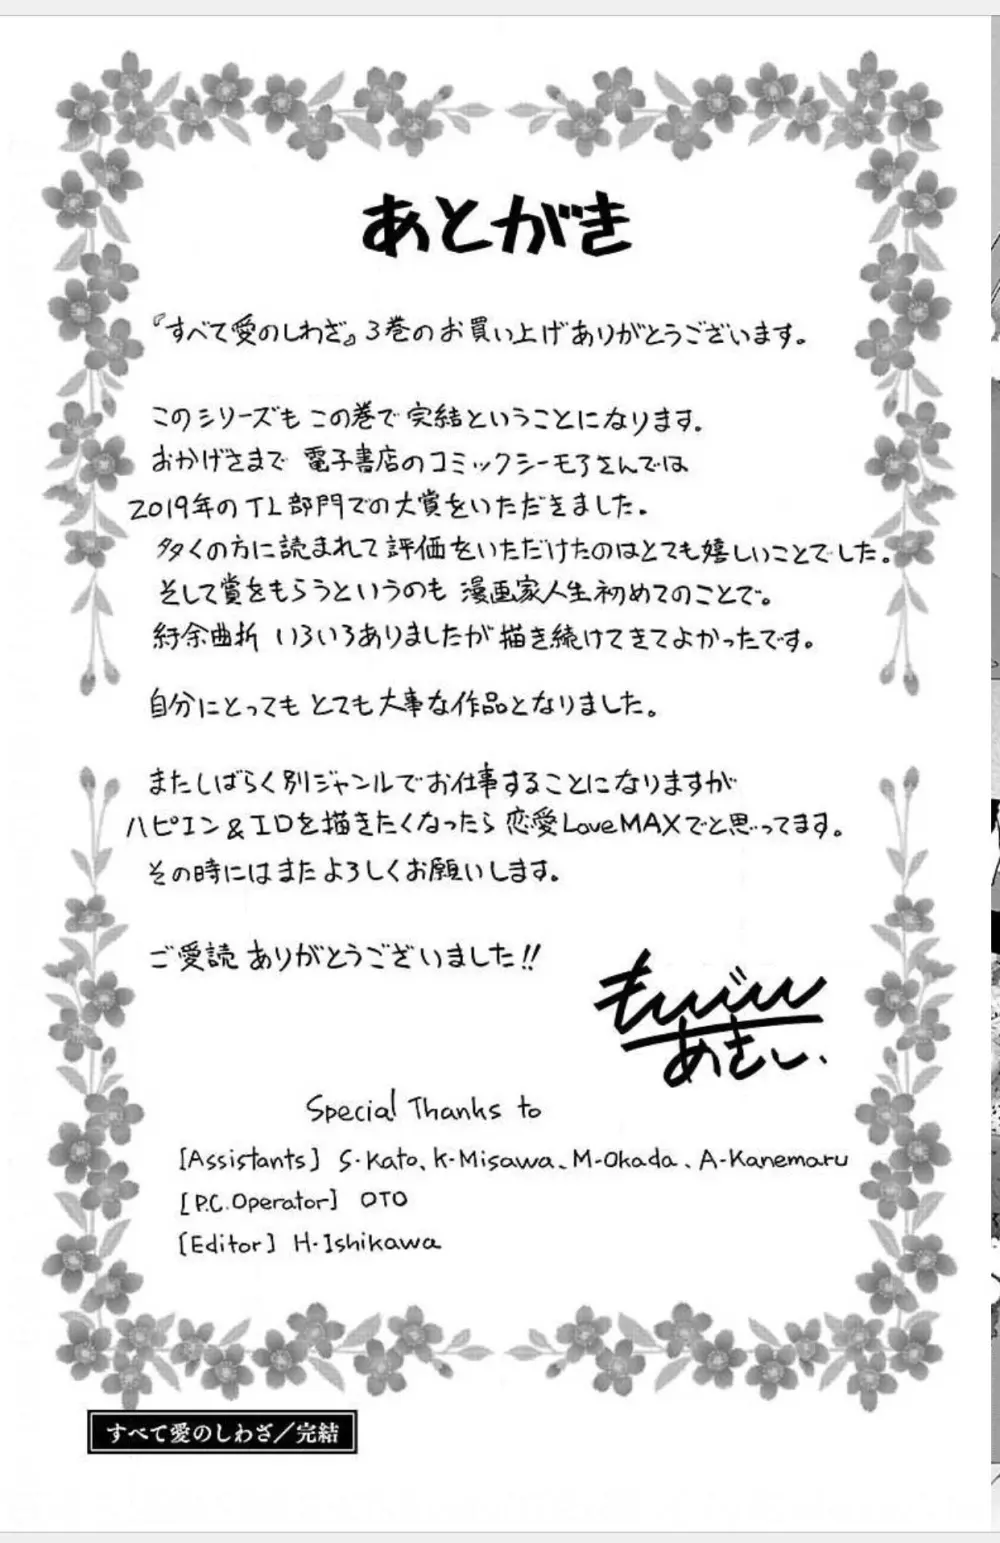 あとがき
『すべて愛のしわざ』3巻のお買い上げありがとうございます。
このシリーズも この巻で 完結ということになります。
おかげさまで 電子書店のコミックシーモアさんでは
2019年のTL部門での大賞をいただきました。
多くの方に読まれて評価をいただけたのはとても嬉しいことでした。
そして賞をもらうというのも 漫画家人生初めてのことで。
紆余曲折 いろいろありましたが描き続けてきてよかったです。
自分にとっても とても大事な作品となりました。
またしばらく別ジャンルでお仕事することになりますが
ハピエン&エロを描きたくなったら 恋愛LoveMAXでと思ってます。
その時にはまたよろしくお願いします。
ご愛読 ありがとうございました!!
もりぐり
あきし、
Special Thanks to
[Assistants] S・Kato、K-Misawa、M-Okada、A-Kanemaru
[P.C.Operator] OTO
[Editor] H・Ishikawa
すべて愛のしわざ/完結